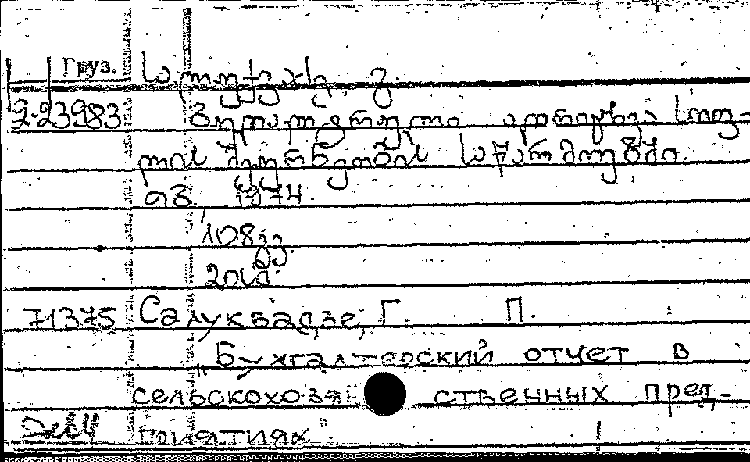 Груз. სალუქვაძე, გ.
2-23983 ბუღალტრული აღრიცხვა სოფ-
ლის მეურნეობის საწარმოებში.
თბ. 1974.
108 გვ.
71375 Салуквадзе, Г. П.
"Бухгалтерский отчет в
сельскохозя ственных пред-
приятиях".